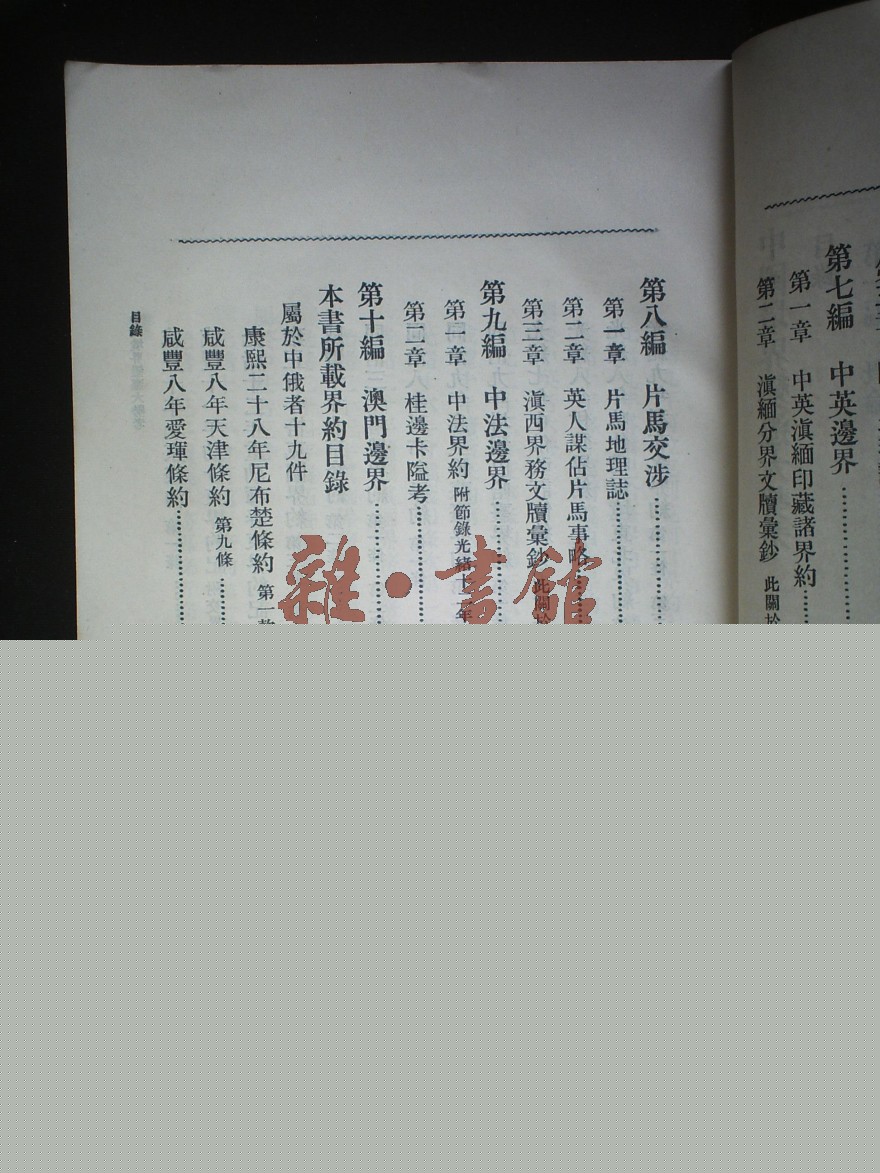 第七編　中英邊界
第一章　中英滇緬印藏諸界約
第二章　滇緬分界文牘彙鈔 此關於
第八編　片馬交涉
第一章　片馬地理誌
第二章　英人謀佔片馬事略
第三章　滇西界務文牘彙鈔 此關於
第九編　中法邊界
第一章　中法界約 附節錄光緒十二年
第二章　桂邊卡隘考
第十編　澳門邊界
本書所載界約目錄
屬於中俄者十九件
康熙二十八年尼布楚條約 第一款
咸豐八年天津條約 第九條
咸豐八年愛琿條約
目錄
雜·書館